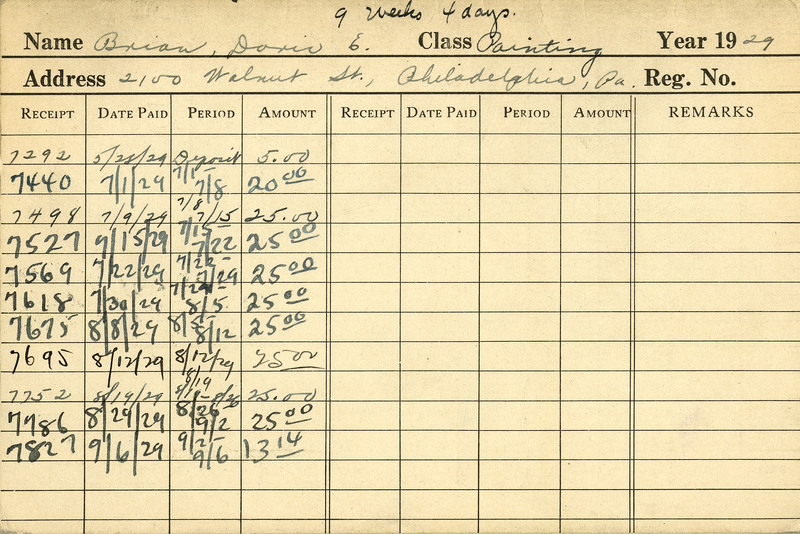 9 weeks 4 days.
Name Brian, Doris E. Class Painting Year 1929
Address 2100 Walnut St., Philadelphia, Pa. Reg. No.
RECEIPT DATE PAID PERIOD AMOUNT RECEIPT DATE PAID PERIOD AMOUNT REMARKS
7292 5/28/29 Deposit 5.00
7440 7/1/29 7/1- 7/8 20 00
7498 7/9/29 7/8- 7/15 25.00
7527 7/15/29 7/15- 7/22 25 00
7569 7/22/29 7/22- 7/29 25 00
7618 7/30/29 7/29- 8/5 25 00
7675 8/8/29 8/5- 8/12 25 00
7695 8/12/29 8/12/29 8/19 25 00
7752 8/19/29 8/19-8/26 25.00
7786 8/29/29 8/26 9/2 25 00
7827 9/6/29 9/2- 9/6 13 14